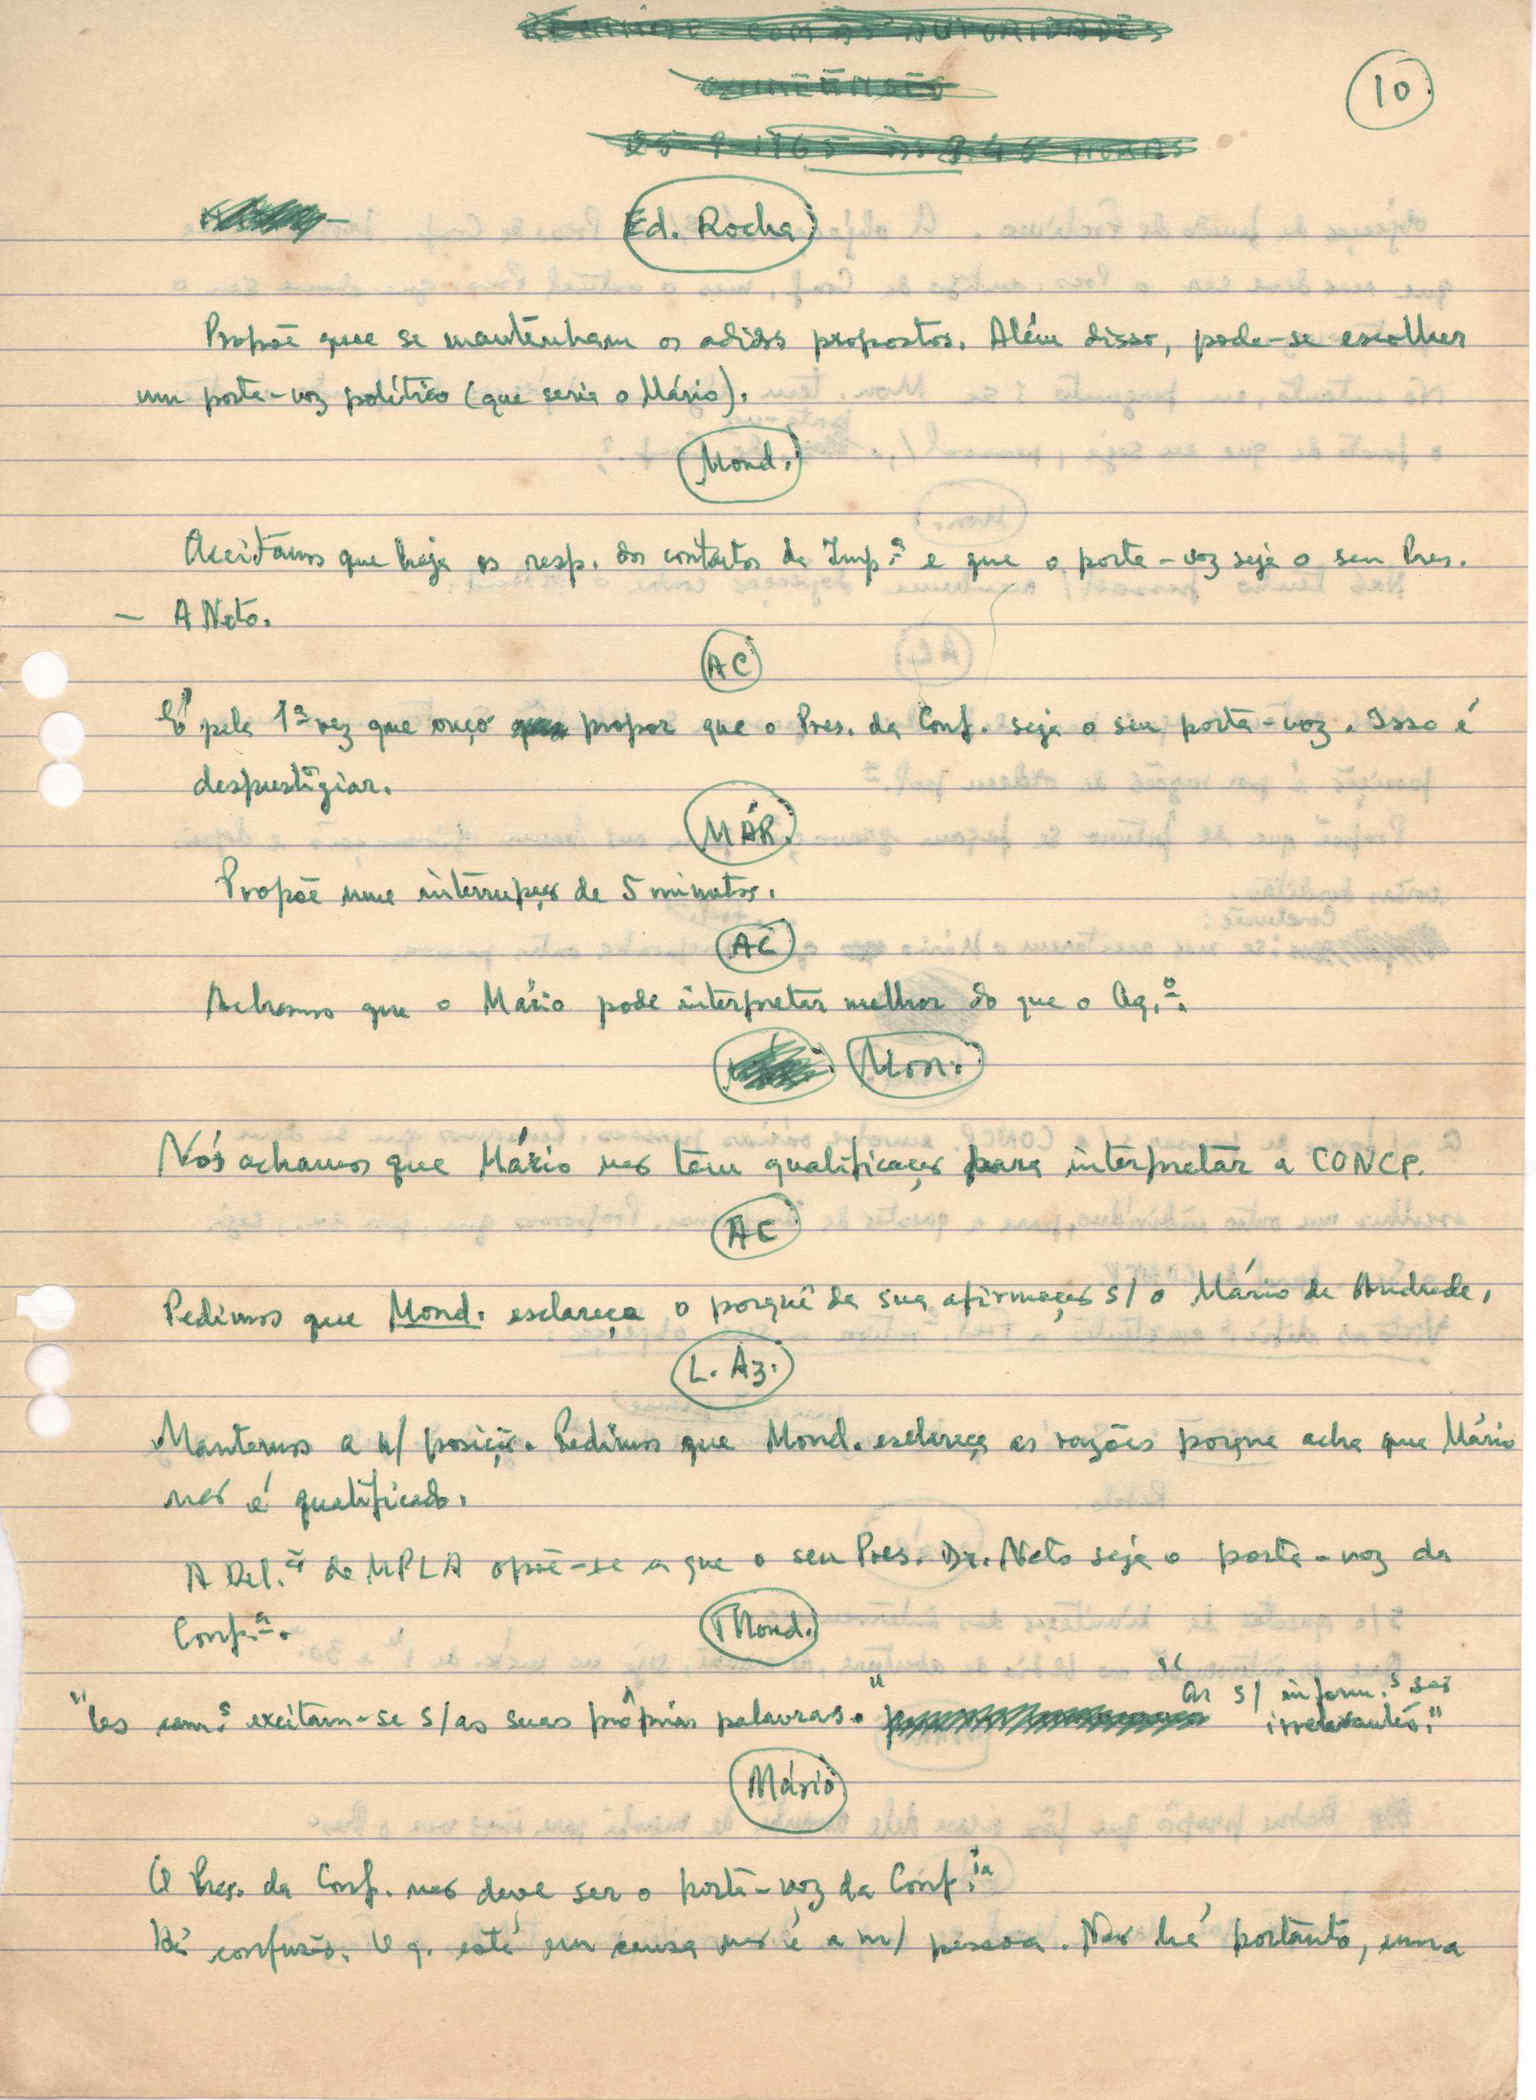 10
Ed. Rocha
Propõe que se mantenham os adidos propostos. Além disso, pode-se escolher
um porta-voz político (que seria o Mário).
Mond.
Aceitamos que haja os resp. dos contactos da Imp.ª e que o porta-voz seja o seu Pres.
— A Neto.
AC
É pela 1ª vez que ouço propor que o Pres. da Conf. seja o seu porta-voz. Isso é
desprestigiar.
MÁR.
Propõe uma interrupção de 5 minutos.
AC
Achamos que o Mário pode interpretar melhor do que o Aq.º.
Mon.
Nós achamos que Mário não tem qualificação para interpretar a CONCP.
AC
Pedimos que Mond. esclareça o porquê da sua afirmação s/ o Mário de Andrade.
L. Az.
Mantemos a n/ posição. Pedimos que Mond. esclareça as razões porque acha que Mário
não é qualificado.
A Del.ª do MPLA opõe-se a que o seu Pres. Dr. Neto seja o porta-voz da
Conf.ª.
Mond.
"Os cam.s excitam-se s/ as suas próprias palavras." "As s/ inform.s são
irrelevantes."
Mário
O Pres. da Conf. não deve ser o porta-voz da Conf.ia
Há confusão. O q. está em causa não é a m/ pessoa. Não há portanto, uma